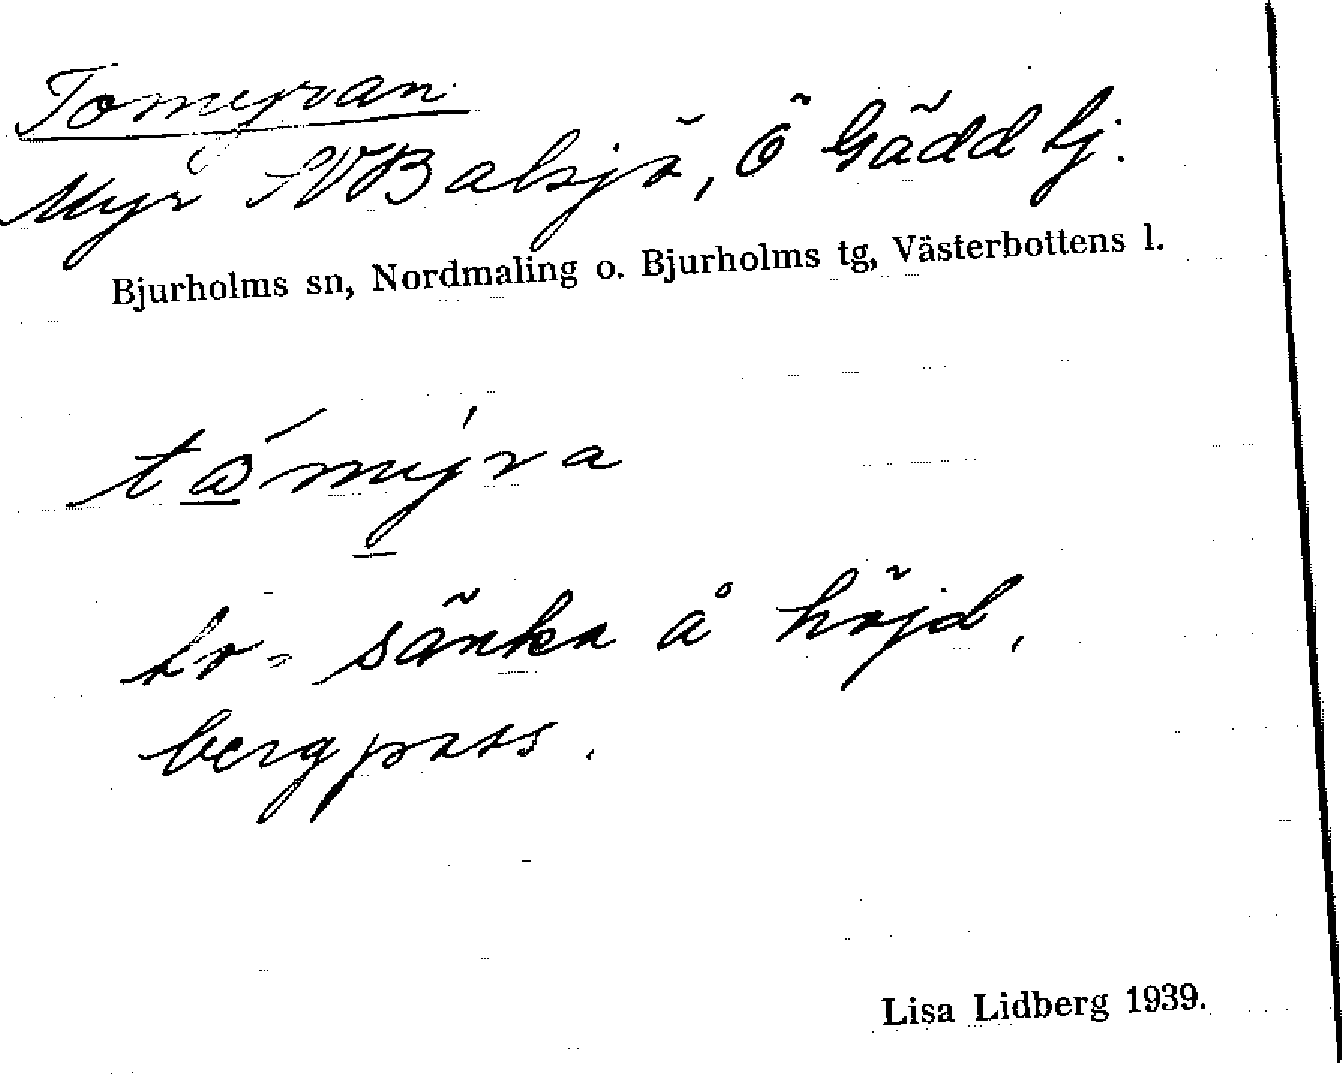 Tomyran
Myr SV Balsjö, Ö Gäddtj.
Bjurholms sn, Nordmaling o. Bjurholms tg, Västerbottens l.
tómýra
sänka å höjd,
bergpass.
Lisa Lidberg 1939.